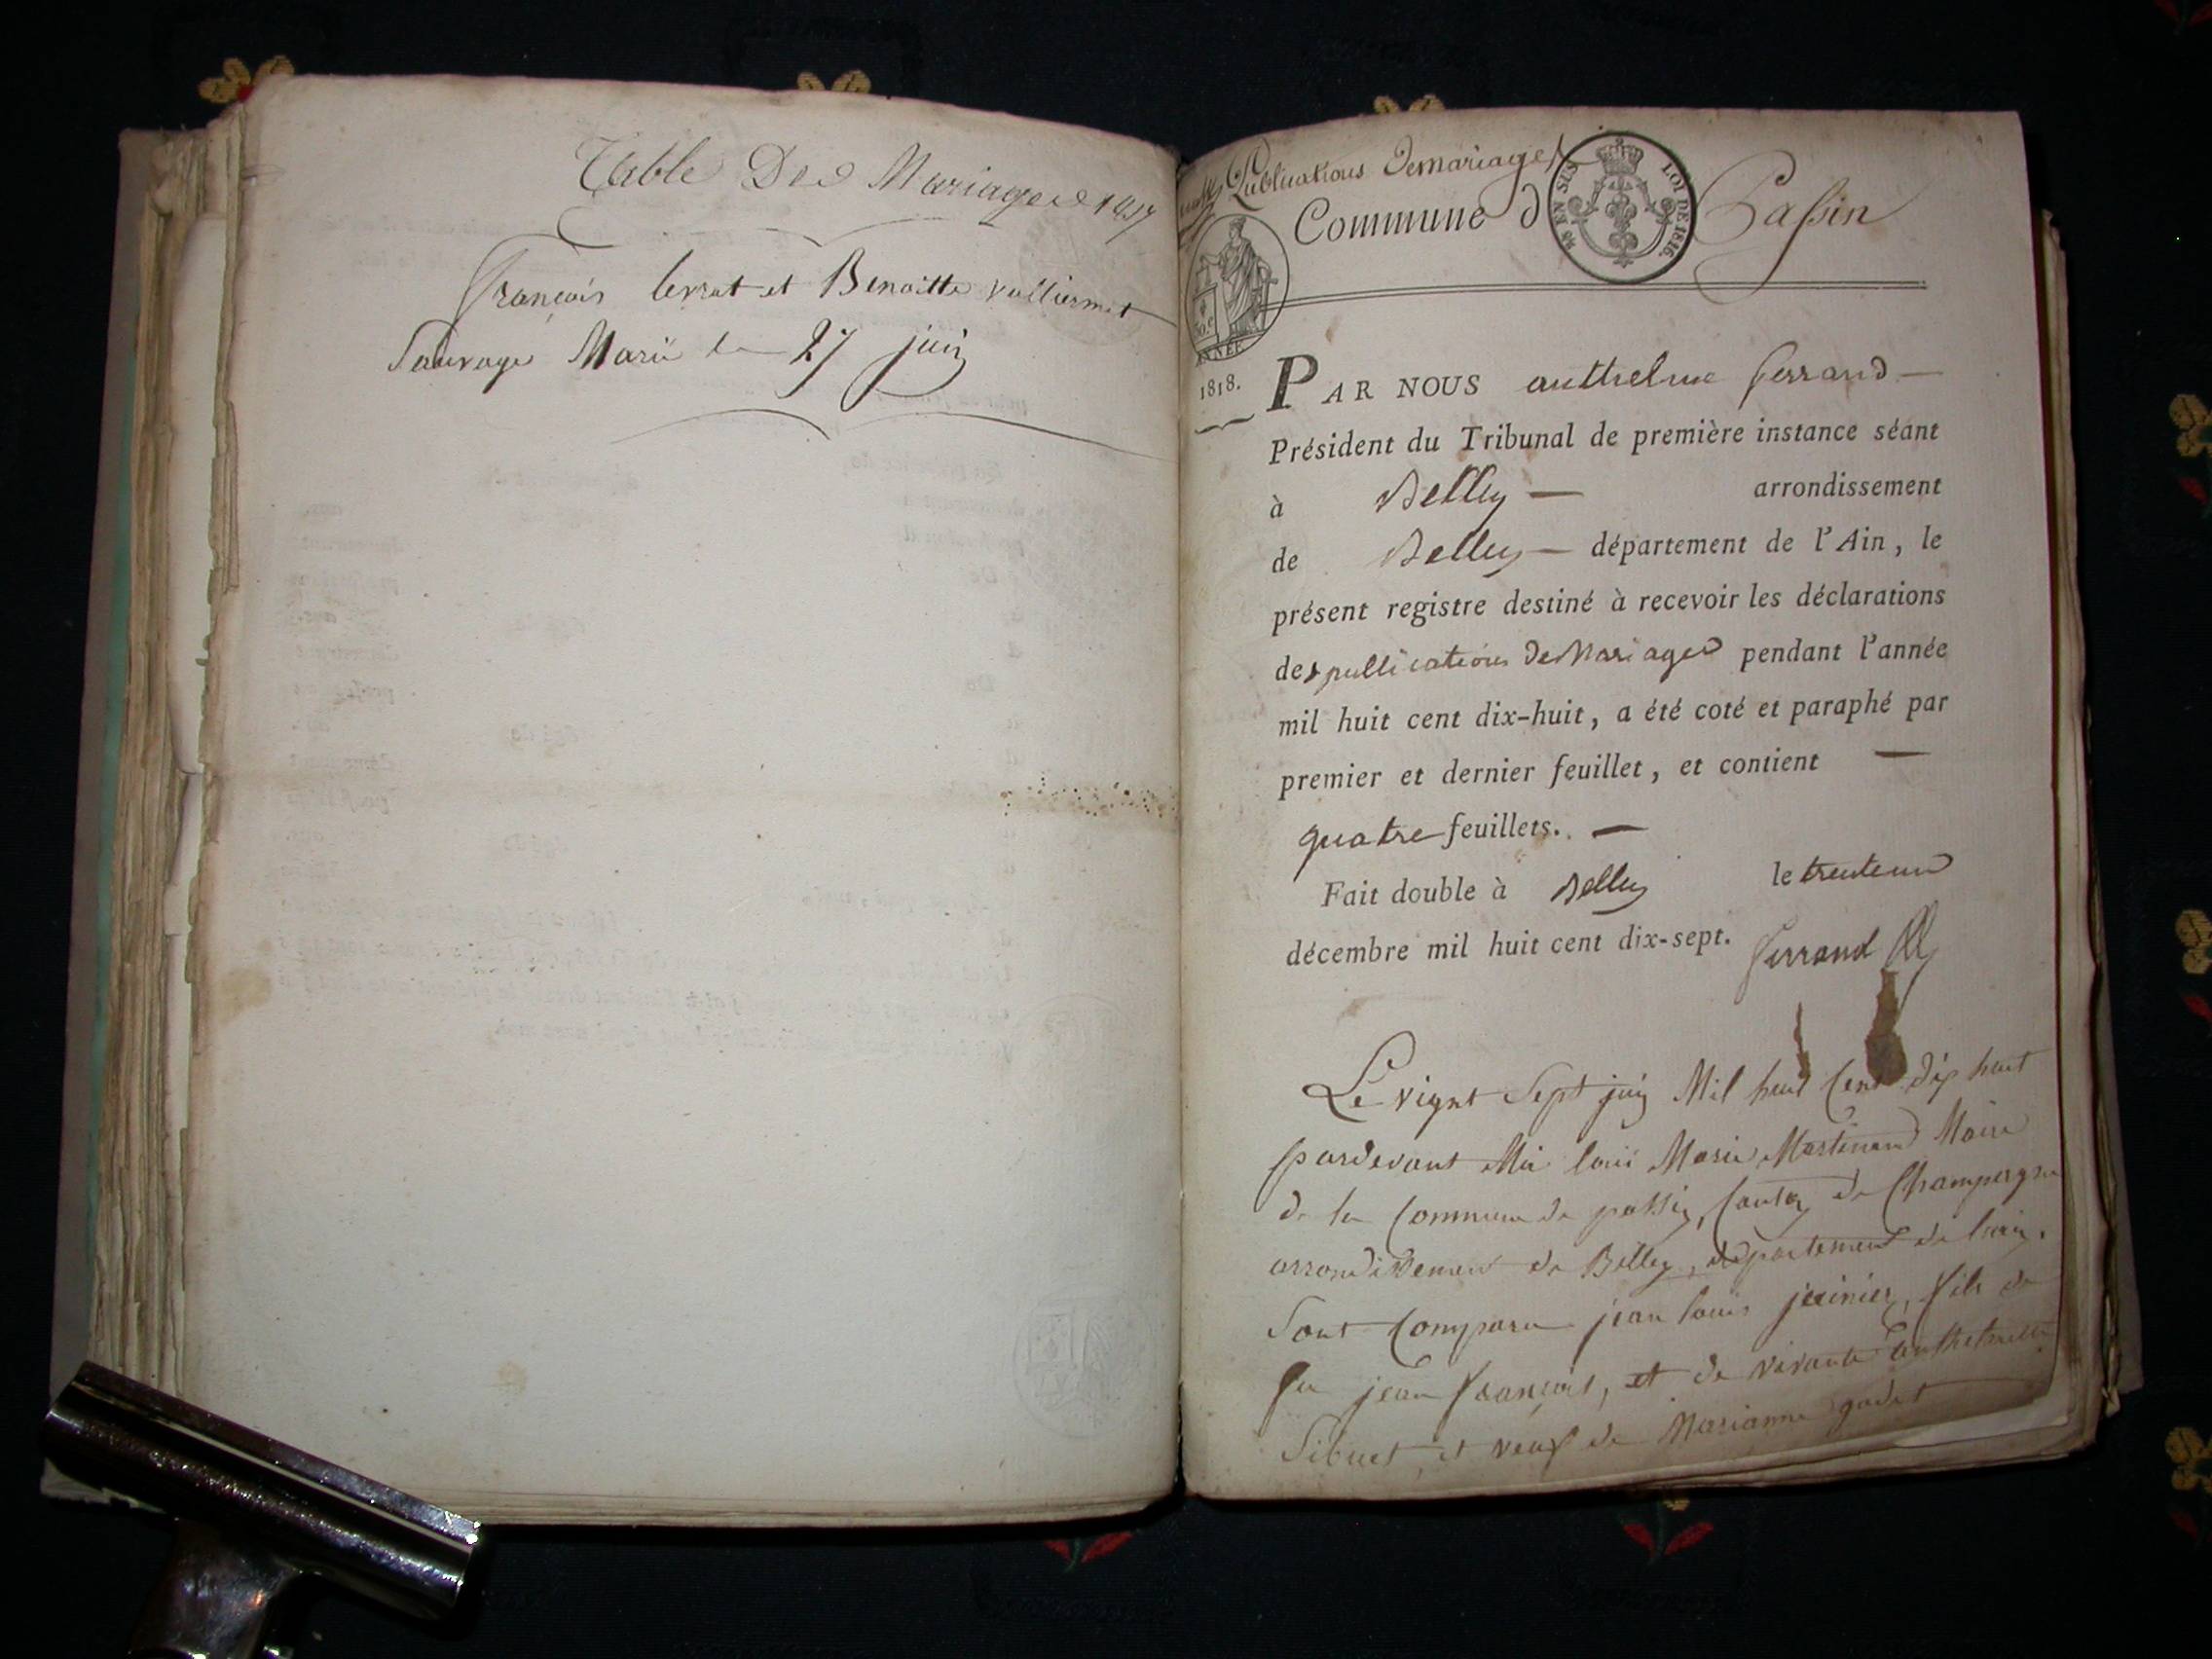 Table Des Mariages 1817
François levrat et Benoitte vulliermet
Sauvage Marié le 27 juin
Publications de mariages
Commune d Passin
48 EN SUS
LOI DE 1816.
ANNÉE
1818.
PAR NOUS anthelme ferrand —
Président du Tribunal de première instance séant
à Belley — arrondissement
de Belley — département de l'Ain, le
présent registre destiné à recevoir les déclarations
des publications de Mariages pendant l'année
mil huit cent dix-huit, a été coté et paraphé par
premier et dernier feuillet, et contient —
quatre feuillets. —
Fait double à Belley le trente un
décembre mil huit cent dix-sept. ferrand
Le vignt Sept juin Mil huit Cent dix huit
pardevant Moi louis Marie Martinand Maire
de la Commune de passin, Canton de Champagne
arrondissement de Belley, département de lain,
Sont Comparu jean louis , fils de
feu jean françois, et de vivante anthelmette
Sibuet, et veuf de Marianne godet